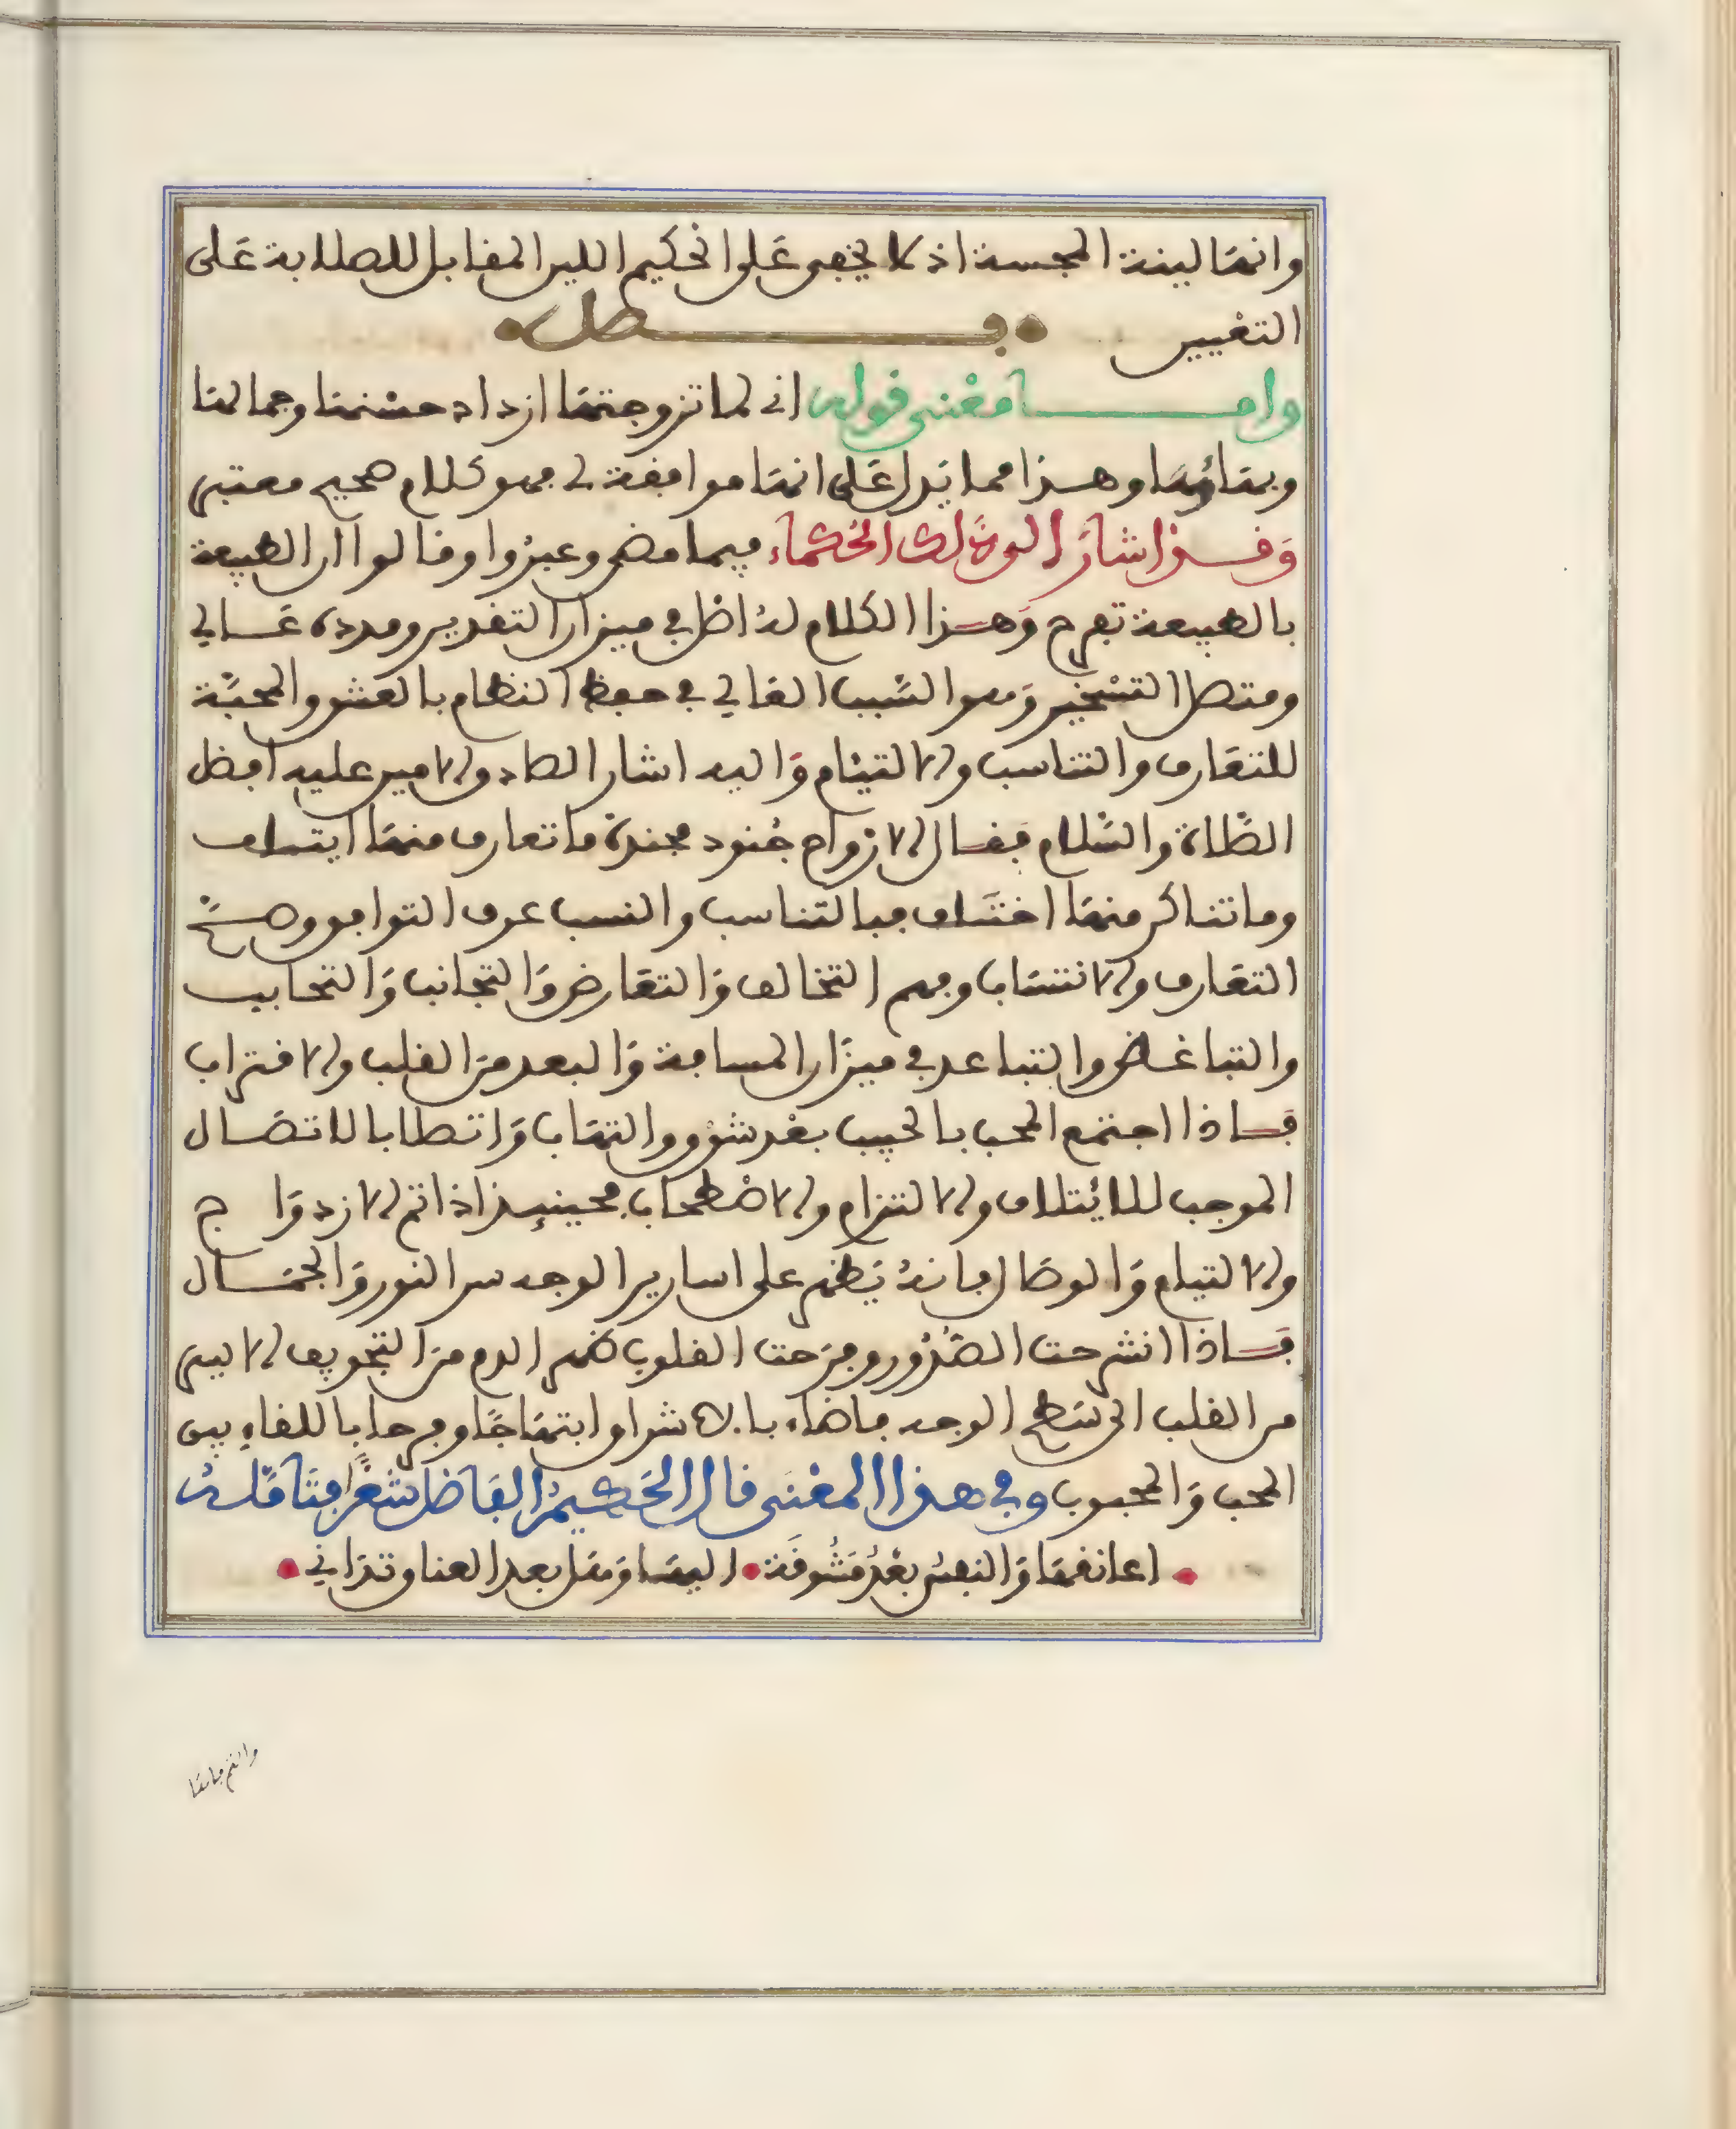 وانها لينة المجسة اذ لا يخفى على الحكيم اللين المقابل للصلابة على
التغيير • فصل •
واما معنى قوله اني لما تزوجتها ازداد حسنها وجمالها
وبهاؤها وهذا مما يدل على انها موافقة لي فهو كلام صحيح معتبر
وقد اشار الى ذلك الحكماء فيما مضى وعبروا وقالوا ان الطبيعة
بالطبيعة تفرح وهذا الكلام له اصل في ميزان التقدير ومدده عالي
ومتصل التسخير وهو السبب الغالي في حفظ النظام بالعشق والمحبة
للتعارف والتناسب والالتيئام واليه اشار الصادق الامين عليه افضل
الصلاة والسلام فقال الارواح جنود مجندة ما تعارف منها ايتلف
وما تناكر منها اختلف فبالتناسب والنسب عرف التوافق وصح
التعارف والانتساب وفهم التخالف والتعارض والتجانب والتحابب
والتباغض والتباعد في ميزان المسافة والبعد من القلب والاقتراب
فاذا اجتمع المحب بالحبيب بعد شوق والتهاب واتصلا بالاتصال
الموجب للايتلاف والالتزام والاصطحاب فحينيذ اذا تم الازدواج
والالتيام والوصال فانه يظهر على اسارير الوجه سر النور والجمال
فاذا انشرحت الصدور وفرحت القلوب ظهر الدم من التجويف الايسر
من القلب الى سطح الوجه فاضاء بالاشراق ابتهاجا وفرحا باللقاء بين
المحب والمحبوب وفي هذا المعنى قال الحكيم الفاضل شعرا فيما قاله
• اعانقها والنفس بعد مشوقة • اليها وهل بعد العناق تداني •
والثم فاها